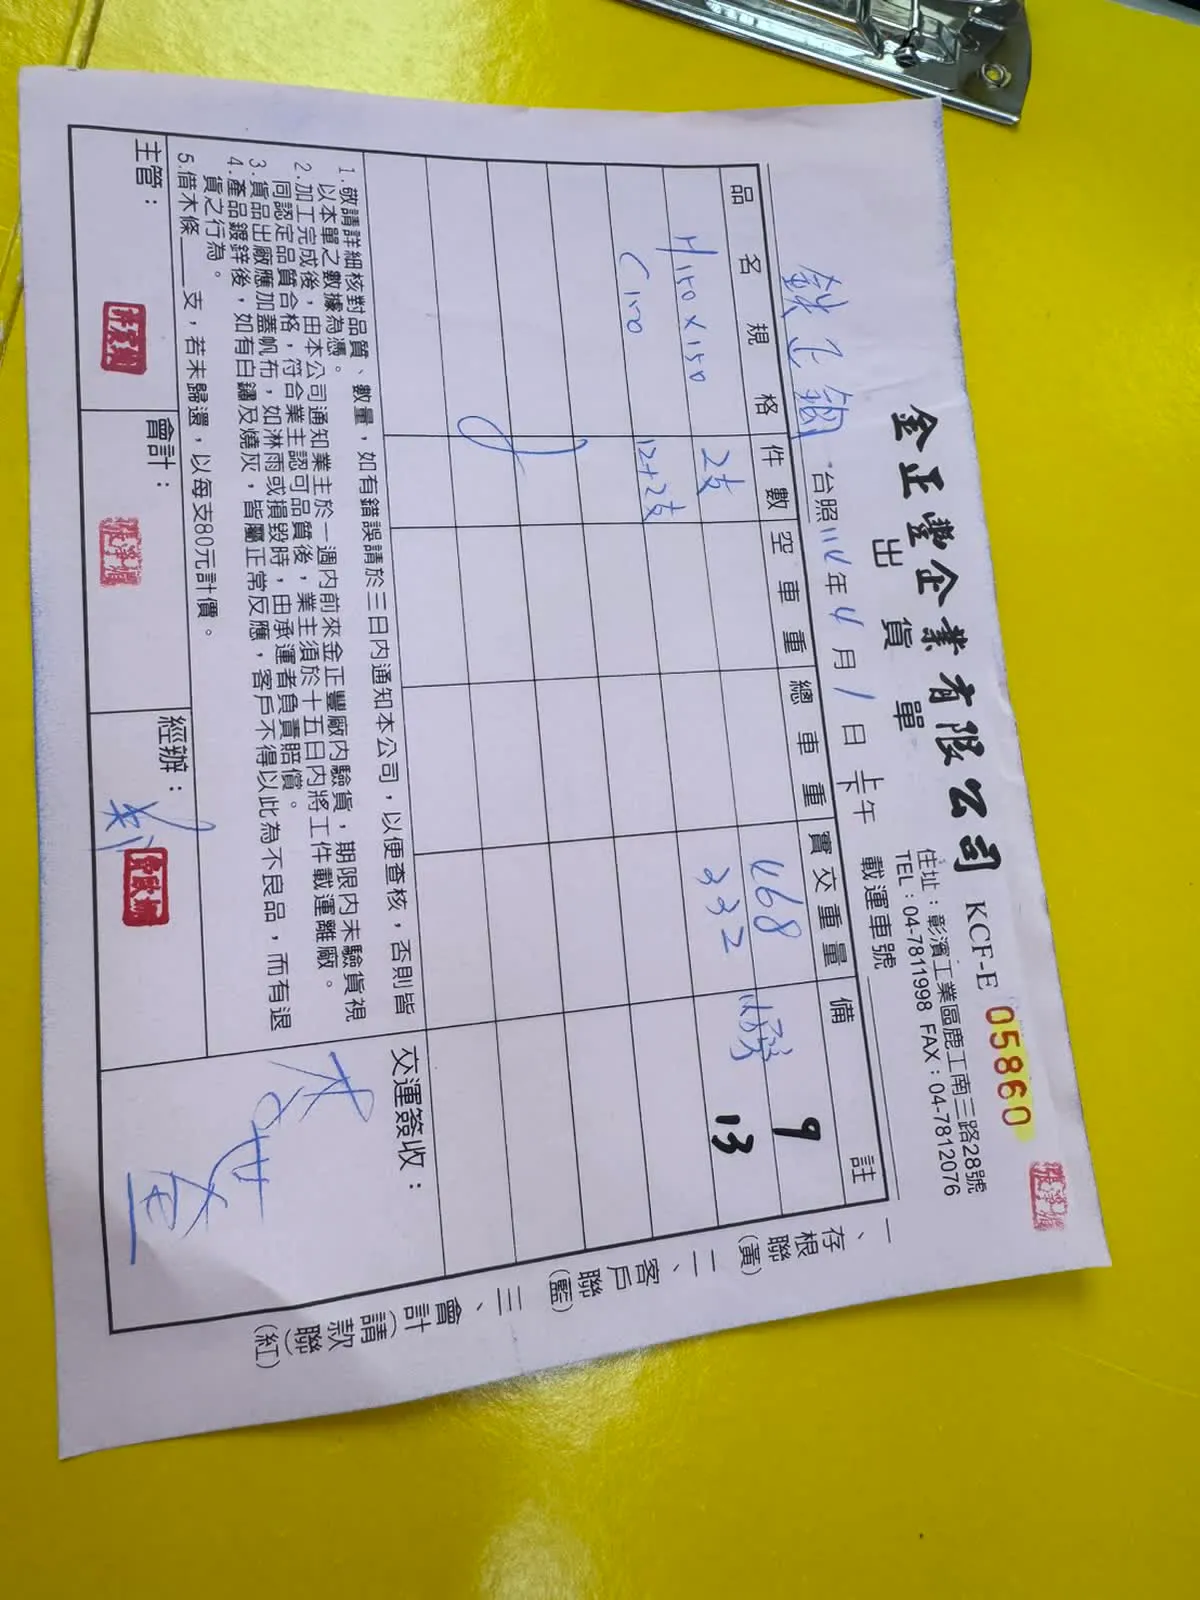 金正豐企業有限公司 KCF-E 05860
出貨單
住址：彰濱工業區鹿工南三路28號
TEL：04-7811998 FAX：04-7812076
台照 114年4月1日 上午 下午 載運車號
品名規格 件數 空車重 總車重 實交重量 備註
H150×150 2支 468 9
C150 12+2支 332 13
1.敬請詳細核對品質、數量，如有錯誤請於三日內通知本公司，以便查核，否則皆
以本單之數據為憑。
2.加工完成後，由本公司通知業主於一週內前來金正豐廠內驗貨，期限內未驗貨視
同認定品質合格，符合業主認可品質後，業主須於十五日內將工件載運離廠。
3.貨品出廠應加蓋帆布，如淋雨或損毀時，由承運者負責賠償。
4.產品鍍鋅後，如有白鏽及燒灰，皆屬正常反應，客戶不得以此為不良品，而有退
貨之行為。
5.借木條___支，若未歸還，以每支80元計價。
交運簽收：
主管：
會計：
經辦：
一、存根聯(黃) 二、客戶聯(藍) 三、會計(請款聯)(紅)